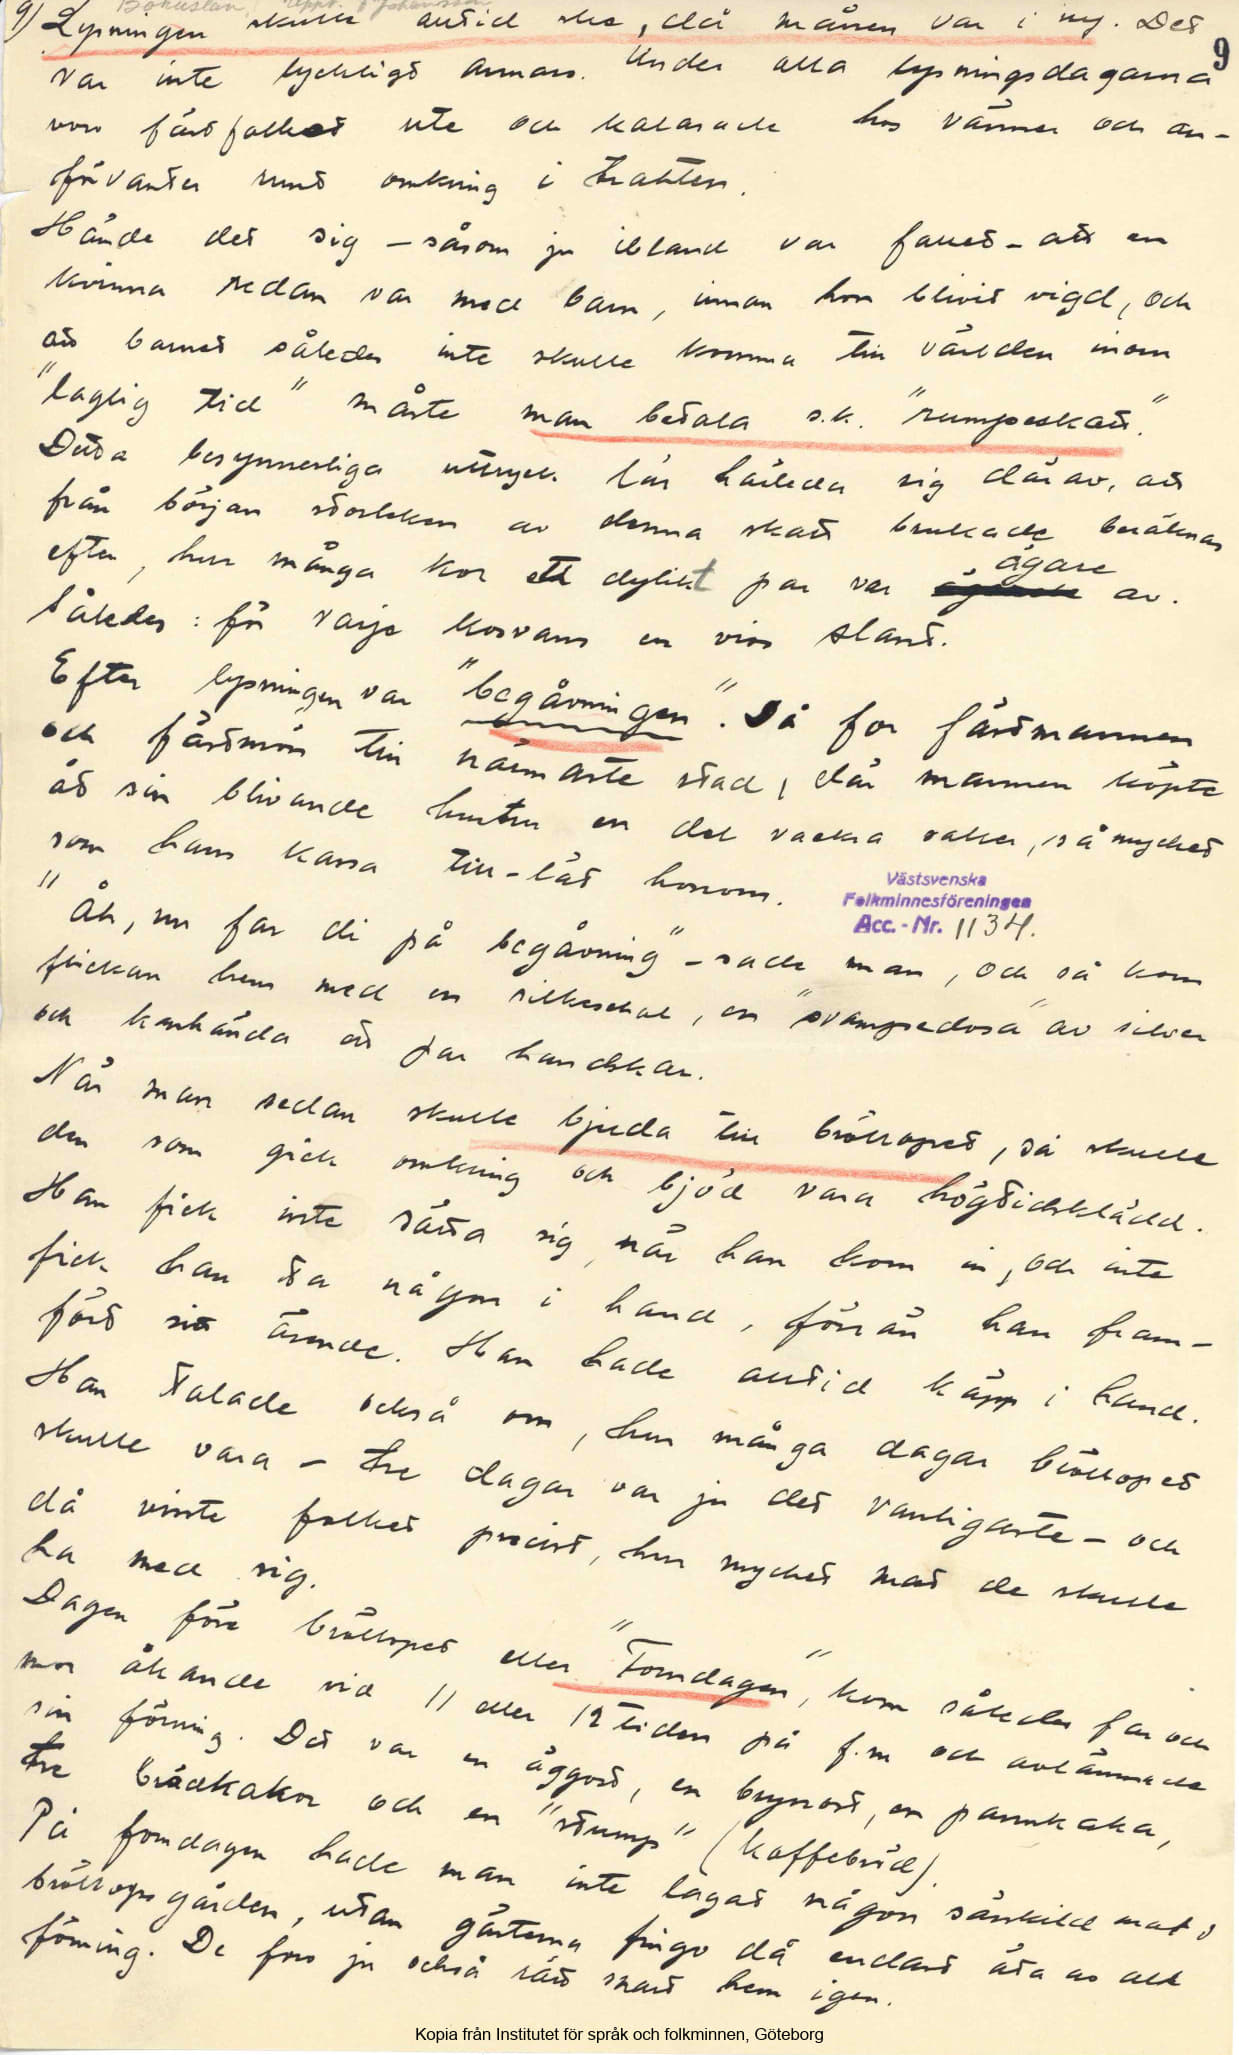 Bohuslän, Uppt. Johansson
9) Lysningen skulle alltid ske, då månen var i ny. Det
9
var inte lyckligt annars. Under alla lysningsdagarna
voro fästfolket ute och kalasade hos vänner och an-
förvanter runt omkring i trakten.
Hände det sig – såsom ju ibland var fallet – att en
kvinna redan var med barn, innan hon blivit vigd, och
att barnet således inte skulle komma till världen inom
"laglig tid" måste man betala s.k. "rumpeskatt".
Detta besynnerliga uttryck lär härleda sig därav, att
från början storleken av denna skatt brukade beräknas
efter, hur många kor ett dylikt par var ägare av.
Således: för varje kosvans en viss slant.
Efter lysningen var "begåvningen". Då for fästmannen
och fästmön till närmaste stad, där mannen köpte
åt sin blivande hustru en del vackra saker, så mycket
som hans kassa till-lät honom.
Västsvenska
Folkminnesföreningen
Acc.-Nr. 1134.
"Åh, nu far di på begåvning" – sade man, och så kom
flickan hem med en silkeschal, en "svampedosa" av silver
och kanhända ett par handskar.
När man sedan skulle bjuda till bröllopet, så skulle
den som gick omkring och bjöd vara högtidsklädd.
Han fick inte sätta sig, när han kom in, och inte
fick han ta någon i hand, förrän han fram-
fört sitt ärende. Han hade alltid käpp i hand.
Han talade också om, hur många dagar bröllopet
skulle vara – tre dagar var ju det vanligaste – och
då visste folket precist, hur mycket mat de skulle
ha med sig.
Dagen före bröllopet eller "Forndagen", kom således far och
mor åkande vid 11 eller 12 tiden på f.m och avlämnade
sin förning. Det var en äggost, en brynost, en pannkaka,
tre brödkakor och en "strump" (kaffebröd).
På forndagen hade man inte lagat någon särskild mat i
bröllopsgården, utan gästerna fingo då endast äta av all
förning. De foro ju också rätt snart hem igen.
Kopia från Institutet för språk och folkminnen, Göteborg